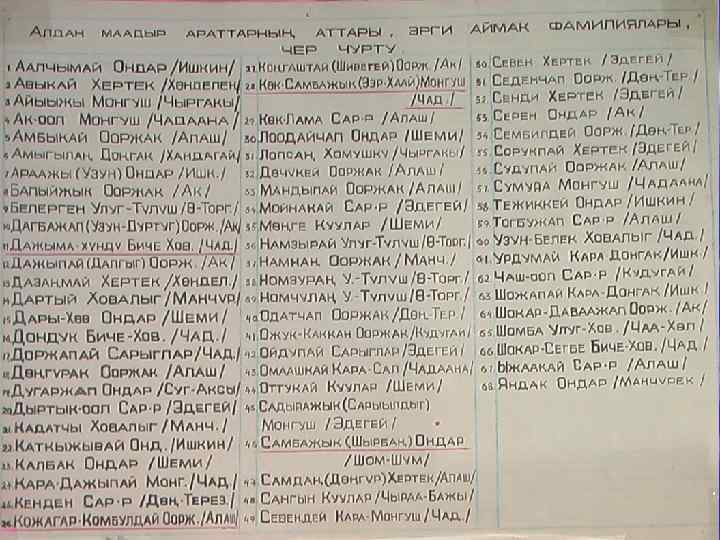 Алдан маадыр араттарның аттары, эрги аймак фамилиялары,
чер чурту.
1. Аалчымай Ондар /Ишкин/
2. Авыкай Хертек /Хөнделең/
3. Айыыжы Монгуш /Чыргакы/
4. Ак-оол Монгуш /Чадаана/
5. Амбыкай Ооржак /Алаш/
6. Амыгылаң Доңгак /Хандагай/
7. Араажы (Узун) Ондар /Ишк./
8. Бапыйжык Ооржак /Ак/
9. Белерген Улуг-Түлүш /Ө-Торг./
10. Дагбажап (Узун-Дургуг) Оорж. /Ак/
11. Дажыма-хүндү Биче Хов. /Чад./
12. Дажыпай (Далгыг) Оорж. /Ак/
13. Дазаңмай Хертек /Хөндел./
14. Дартый Ховалыг /Манчүр/
15. Дары-Хөө Ондар /Шеми/
16. Дондук Биче-Хов. /Чад./
17. Доржапай Сарыглар /Чад./
18. Дөңгүрак Ооржак /Алаш/
19. Дугаржап Ондар /Суг-Аксы/
20. Дыртык-оол Сар-р /Эдегей/
21. Кадатчы Ховалыг /Манч./
22. Каткыжывай Онд. /Ишкин/
23. Калбак Ондар /Шеми/
24. Кара-Дажыпай Монг. /Чад./
25. Кенден Сар-р /Дөң-Терез./
26. Кожагар-Комбулдай Оорж. /Алаш/
27. Коңгаштай (Шивегей) Оорж. /Ак/
28. Көк-Самбажык (Ээр-Хаай) Монгуш
/Чад./
29. Көк-Лама Сар-р /Алаш/
30. Лоодайчап Ондар /Шеми/
31. Лопсаң, Хомушку /Чыргакы/
32. Дөчүкей Ооржак /Алаш/
33. Мандыпай Ооржак /Алаш/
34. Мойнакай Сар-р /Эдегей/
35. Мөңге Куулар /Шеми/
36. Намзырай Улуг-Түлүш /Ө-Торг./
37. Намнаң Ооржак /Манч./
38. Номзураң У.-Түлүш /Ө-Торг./
39. Номчулаң У.-Түлүш /Ө-Торг./
40. Одатчап Ооржак /Дөң-Тер./
41. Ожук-Каккан Ооржак /Кудугай/
42. Ойдупай Сарыглар /Эдегей/
43. Омаашкай Кара-Сал /Чадаана/
44. Оттукай Куулар /Шеми/
45. Садыяажык (Сарыылдыг)
Монгуш /Эдегей/
46. Самбажык (Шырбаң) Ондар
/Шом-Шум/
47. Самдаң (Дөңгүр) Хертек /Алаш/
48. Сангын Куулар /Чыраа-Бажы/
49. Севендей Кара-Монгуш /Чад./
50. Севен Хертек /Эдегей/
51. Седенчап Оорж. /Дөң-Тер./
52. Сенди Хертек /Эдегей/
53. Серен Ондар /Ак/
54. Сембилдей Оорж. /Дөң.-Тер./
55. Сорукпай Хертек /Эдегей/
56. Судупай Ооржак /Алаш/
57. Сумуяа Монгуш /Чадаана/
58. Тежиккей Ондар /Ишкин/
59. Тогбужап Сар-р /Алаш/
60. Узун-Белек Ховалыг /Чад./
61. Урдумай Кара Донгак /Ишк/
62. Чаш-оол Сар-р /Кудугай/
63. Шожапай Кара-Донгак /Ишк./
64. Шокар-Даваажап Оорж. /Ак/
65. Шомба Улуг-Хов. /Чаа-Хөл/
66. Шокар-Сегбе Биче-Хов. /Чад./
67. Ыжаакай Сар-р /Алаш/
68. Яндак Ондар /Манчүрек/